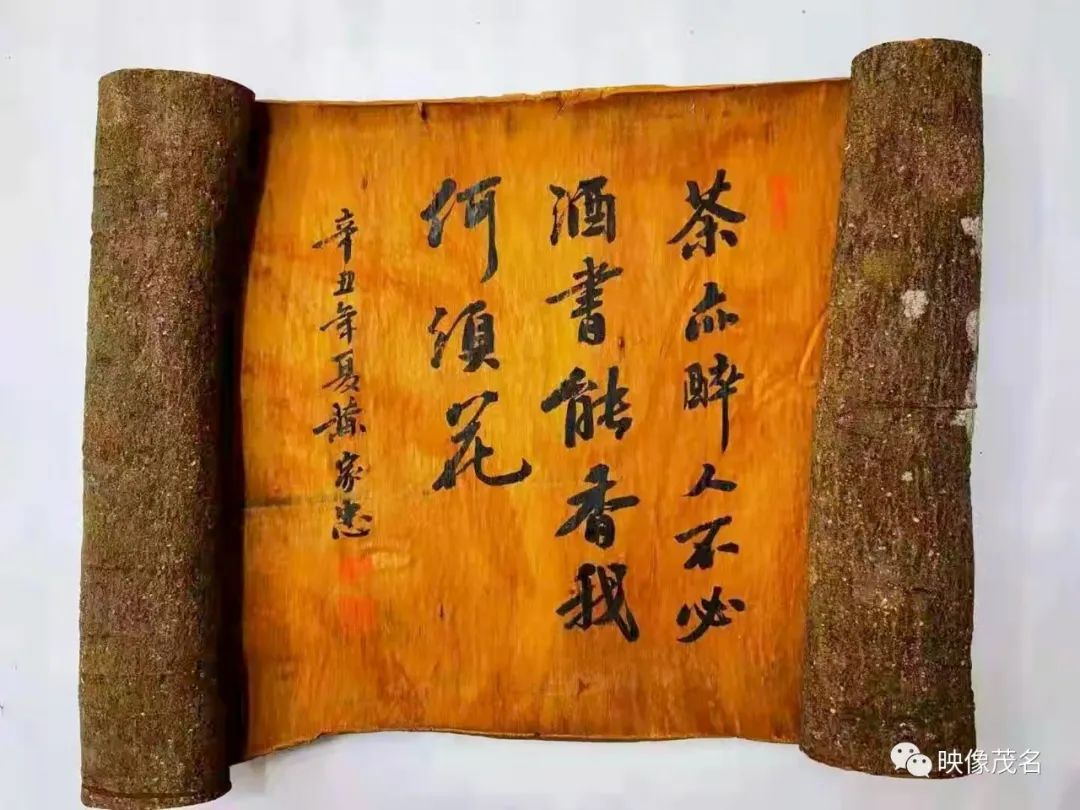 茶亦醉人不必
酒書能香我
何須花
辛丑年夏 家忠
映像茂名